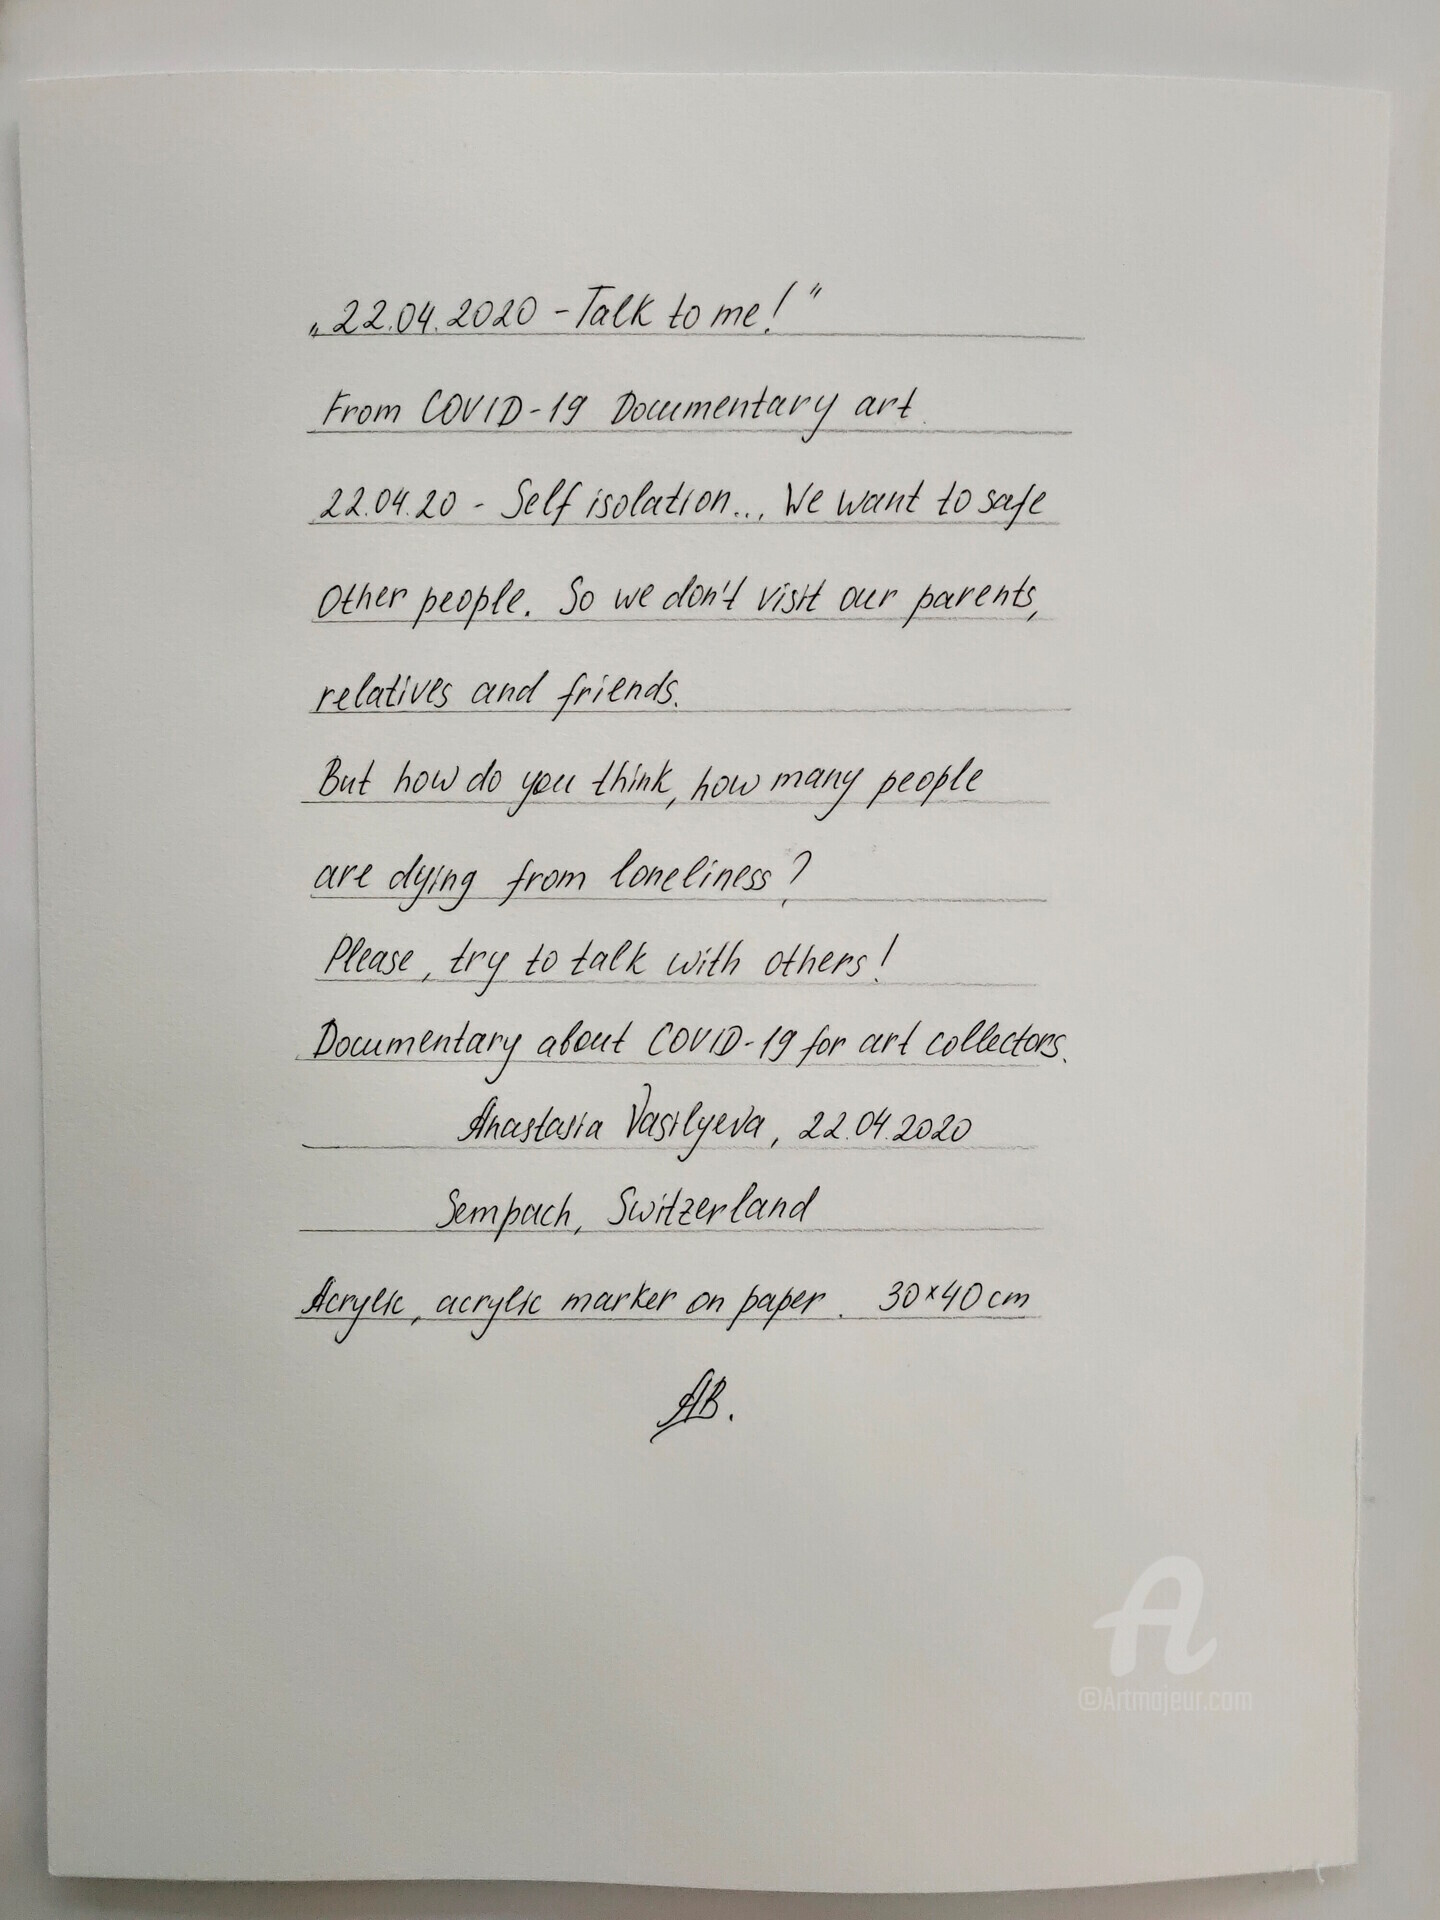 „22.04.2020 - Talk to me!"
From COVID-19 Documentary art
22.04.20 - Self isolation... We want to safe
Other people. So we don't visit our parents,
relatives and friends.
But how do you think, how many people
are dying from loneliness?
Please, try to talk with others!
Documentary about COVID-19 for art collectors.
Anastasia Vasilyeva, 22.04.2020
Sempach, Switzerland
Acrylic, acrylic marker on paper. 30×40 cm
AB.
A
©Artmajeur.com